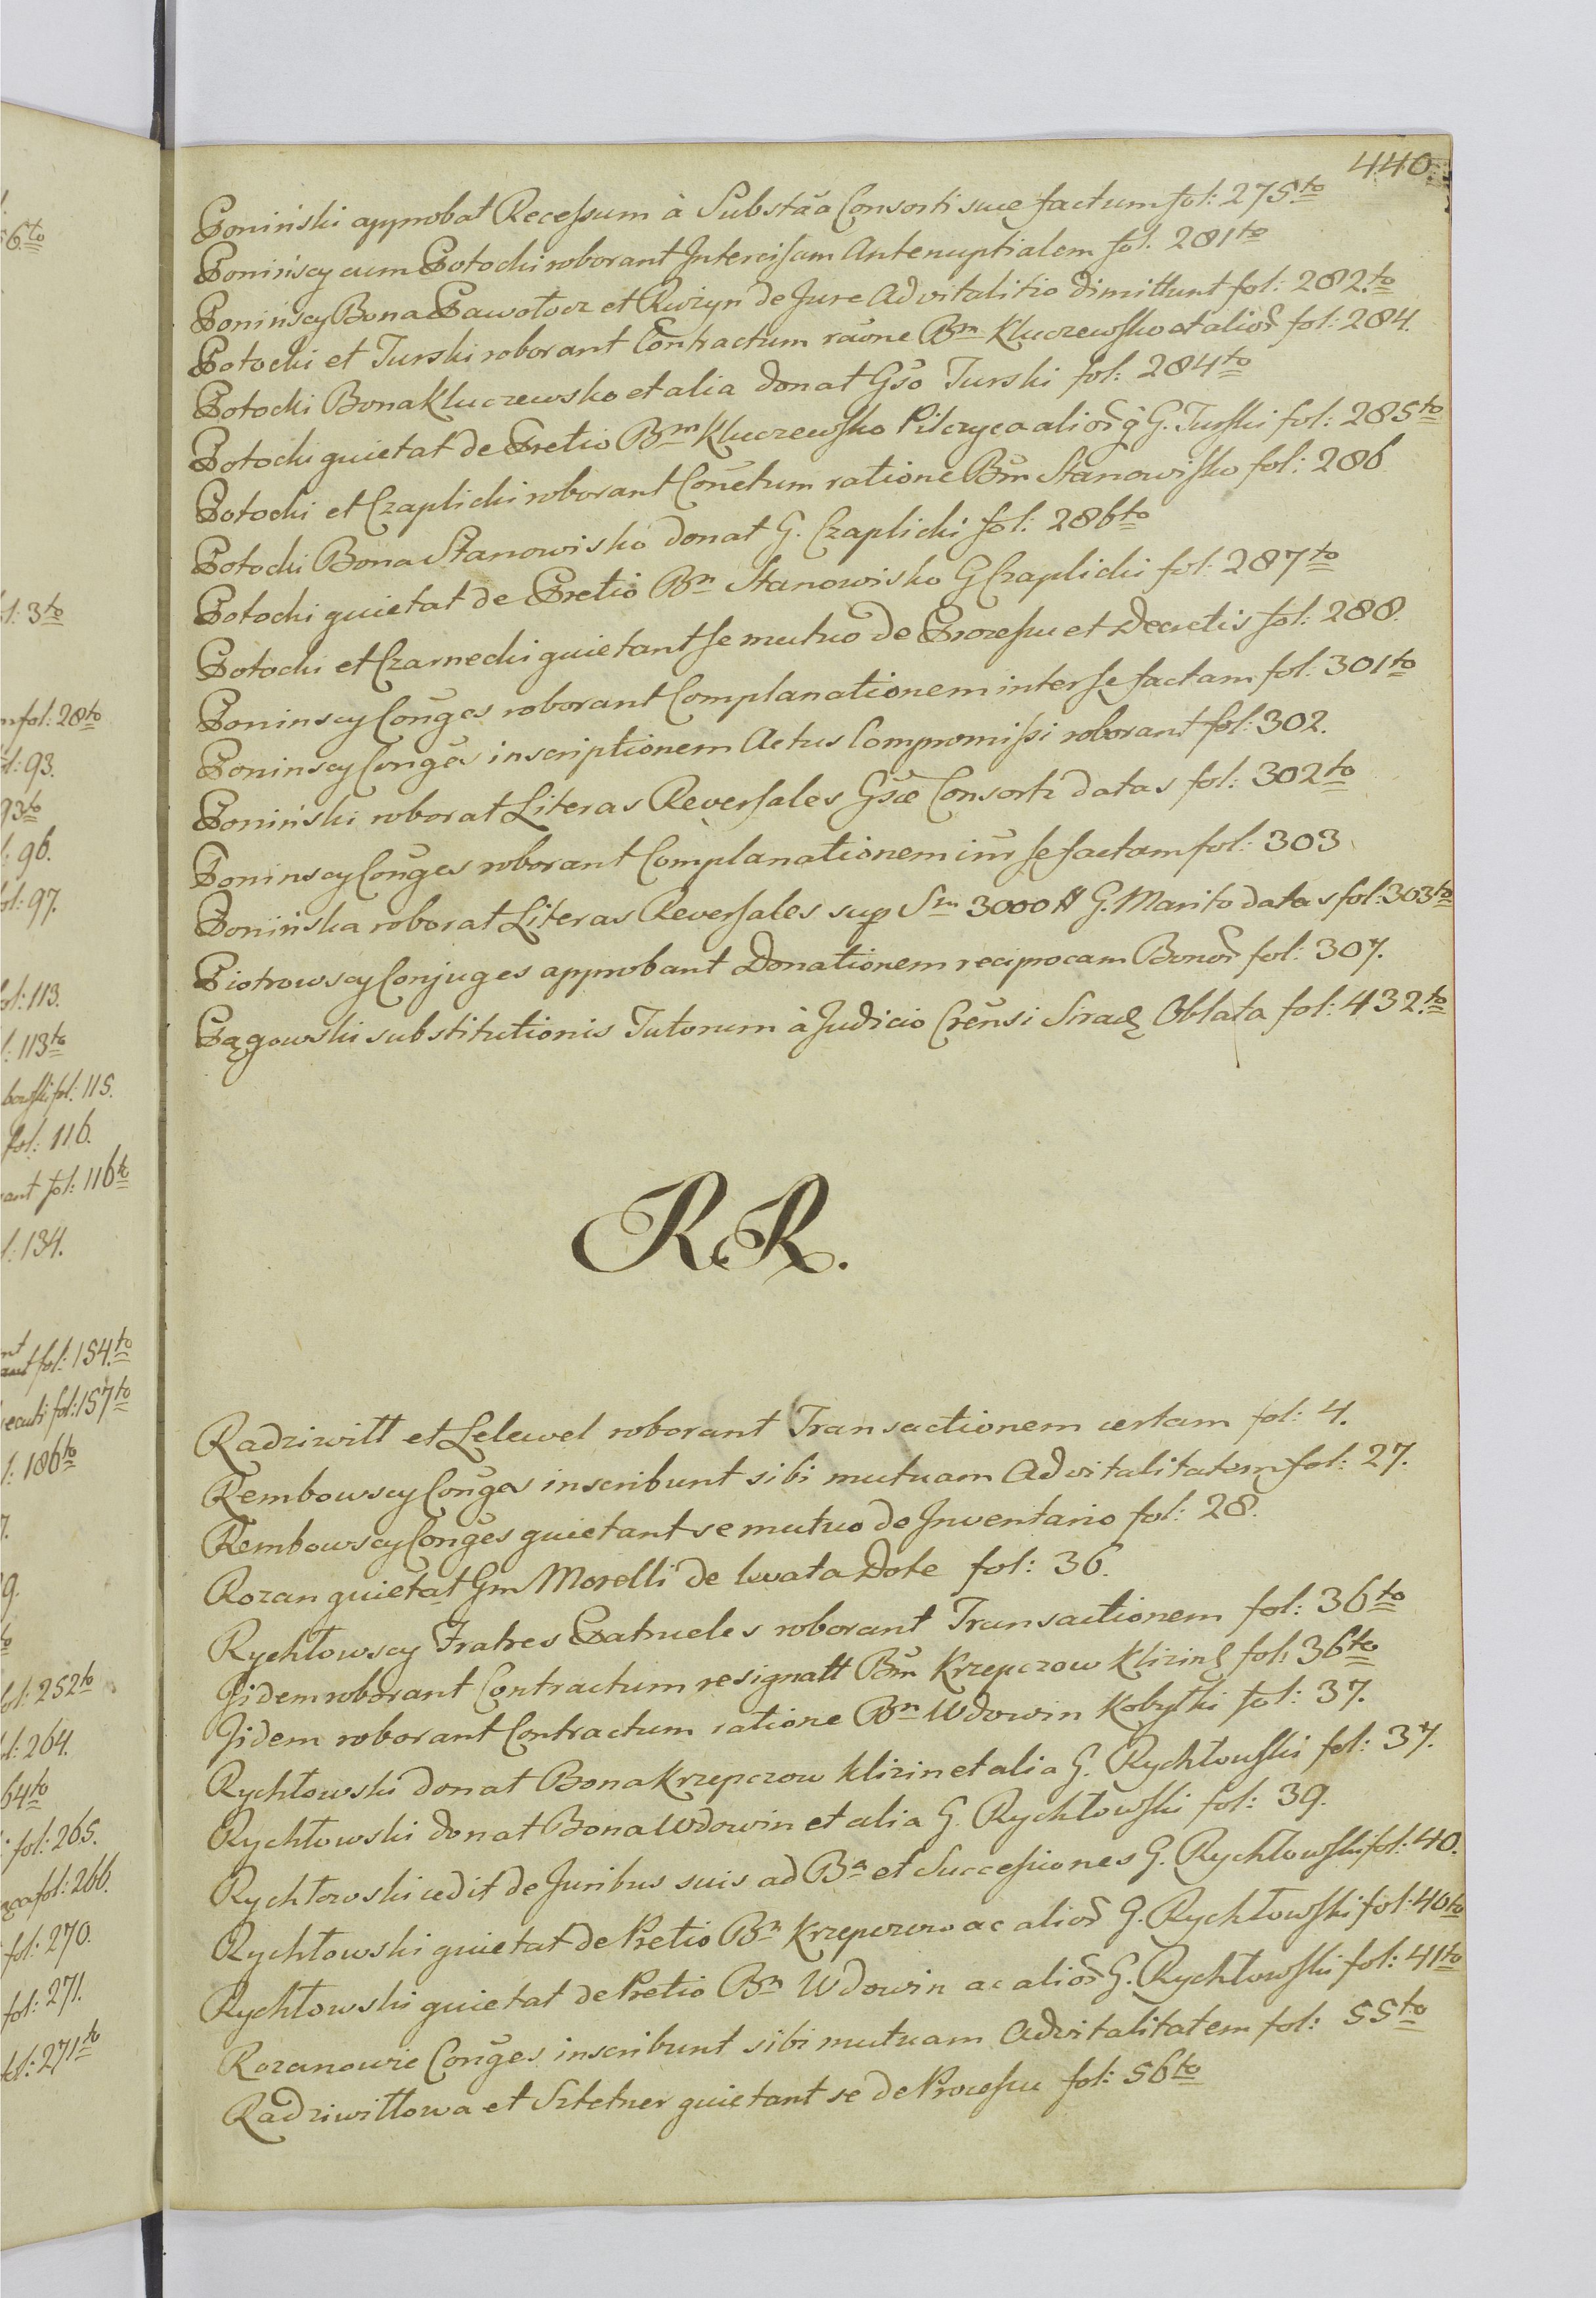 440.
Poniński approbat Recessum à Substãa Consorti suæ factum fol: 275to
Poninscy cum Potocki roborant Intercisam Antenuptialem fol. 281to
Poninscy Bona Pawołocz et Ruzyn de Jure Advitalitio dimittunt fol: 282.to
Potocki et Turski roborant Contractum raõne Bm Kluczewsko et alior fol: 284.
Potocki Bona Kluczewsko et alia donat Gso Turski fol: 284to
Potocki quietat de Pretio Bm Kluczewsko Pilczyca alior G. Turski fol: 285to
Potocki et Czaplicki roborant Conctum ratione Bm Stanowisko fol: 286
Potocki Bona Stanowisko donat G. Czaplicki fol: 286to
Potocki quietat de Pretio Bn Stanowisko G Czaplicki fol: 287to
Potocki et Czarnecki quietant se mutuo de Processu et Decretis fol: 288.
Poninscy Conges roborant Complanationem inter se factam fol: 301to
Poninscy Conges inscriptionem Actus Compromissi roborant fol: 302.
Poniński roborat Literas Reversales Gsæ Consorti datas fol: 302to
Poninscy Conges roborant Complanationem inr se factam fol: 303
Ponińska roborat Literas Reversales sup Sm 3000 # G. Marito datas fol: 303to
Piotrowscy Conjuges approbant Donationem reciprocam Bonor fol: 307.
Pągowski substitutionis Tutorum à Judicio Crensi Sirad Oblata fol: 432.to
RR.
Radziwiłł et Lelewel roborant Transactionem certam fol: 4.
Rembowscy Conges inscribunt sibi mutuam Advitalitatem fol: 27.
Rembowscy Conges quietant se mutuo de Inventario fol: 28.
Rozan quietat Gm Morelli de levata Dote fol: 36.
Rychłowscy Fratres Patrueles roborant Transactionem fol: 36to
Iidem roborant Contractum resignatt Bm Krzepczow Klizin fol: 36to
Iidem roborant Contractum ratione Bn Wdowin Kobyłki fol: 37.
Rychłowski donat Bona Krzepczow Klizin et alia G. Rychłowski fol: 37.
Rychłowski donat Bona Wdowin et alia G. Rychłowski fol: 39.
Rychłowski cedit de Juribus suis ad Ba et Successiones G. Rychłowski fol: 40.
Rychłowski quietat de Pretio Bn Krzepczow ac alior G. Rychłowski fol: 40to
Rychłowski quietat de Pretio Bm Wdowin ac alior G. Rychłowski fol: 41to
Rozanowie Conges inscribunt sibi mutuam Advitalitatem fol: 55to
Radziwiłłowa et Sztetner quietant se de Processu fol: 56to
6.to
3to
fol: 28to
93.
93to
96.
97.
113.
113to
fol. 115.
fol: 116.
fol: 116to
134.
fol: 154.to
fol: 157to
186to
252to
264.
64to
fol: 265.
fol: 266.
fol: 270.
fol: 271.
271to